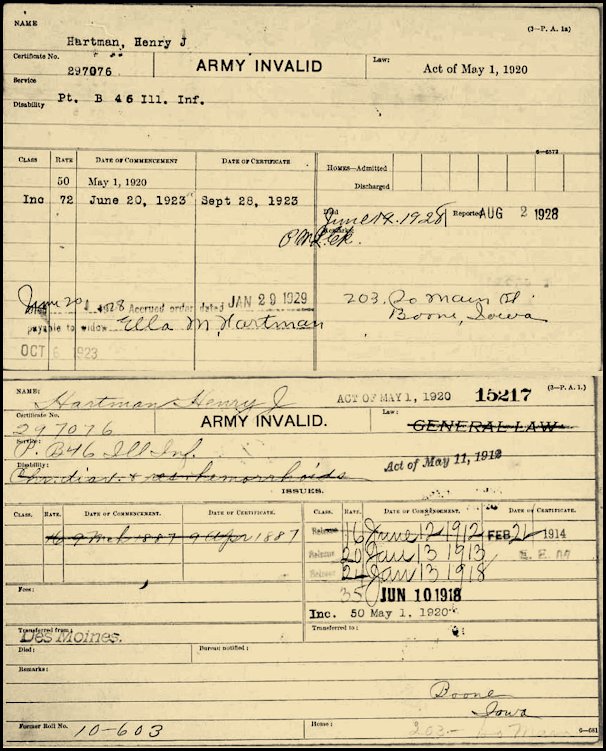 NAME
(3—P. A. 1a)
Hartman, Henry J
Certificate No.
297076
ARMY INVALID
Law:
Act of May 1, 1920
Service
Disability
Pt. B 46 Ill. Inf.
6—6573
CLASS RATE DATE OF COMMENCEMENT DATE OF CERTIFICATE
HOMES—Admitted
Discharged
50 May 1, 1920
Inc 72 June 20, 1923 Sept 28, 1923
Died June 14. 1928 Reported AUG 2 1928
Remarks
June 20 1928 Accrued order dated JAN 29 1929
payable to widow Ella M. Hartman
203. So Main St.
Boone, Iowa
OCT 6 1923
NAME:
Hartman Henry J
ACT OF MAY 1, 1920
15217
(3—P. A. 1.)
Certificate No.
297076
ARMY INVALID.
Law:
GENERAL LAW
Service:
P. B 46 Ill Inf.
Act of May 11, 1912
Disability:
Chr. diar. & res. hemorrhoids
ISSUES.
CLASS. RATE. DATE OF COMMENCEMENT. DATE OF CERTIFICATE.
CLASS. RATE. DATE OF COMMENCEMENT. DATE OF CERTIFICATE.
9 Mch 1887 9 Apr 1887
Reissue 16 June 12 1912 FEB 21 1914
Reissue 20 Jan 13 1913
Reissue 24 Jan 13 1918
35 JUN 10 1918
Fees:
Inc. 50 May 1. 1920
Transferred from:
Des Moines.
Transferred to:
Died:
Bureau notified:
Remarks:
Boone
Iowa
Former Roll No.
10-603
Home:
203- So Main
6—681